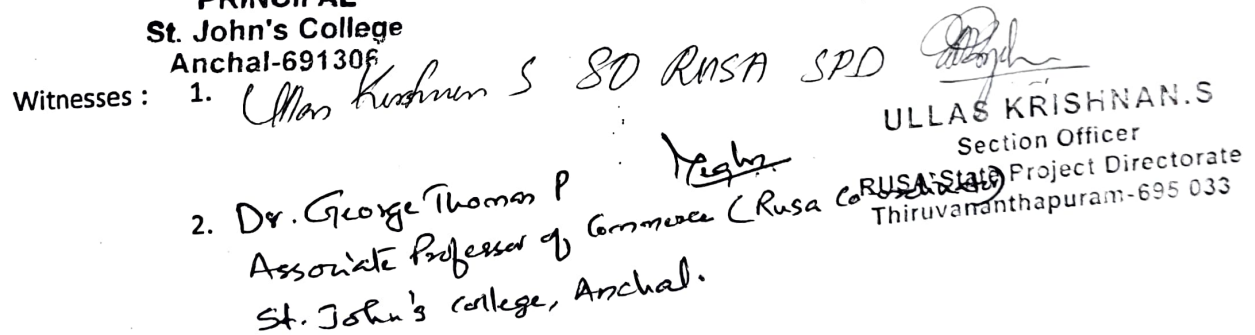 PRINCIPAL
St. John's College
Anchal-691306
Witnesses : 1. Ullas Krishnan S SO RUSA SPD
ULLAS KRISHNAN.S
Section Officer
RUSA State Project Directorate
Thiruvananthapuram-695 033
2. Dr. George Thomas P
Associate Professor of Commerce (Rusa Co-ordinator)
St. John's college, Anchal.